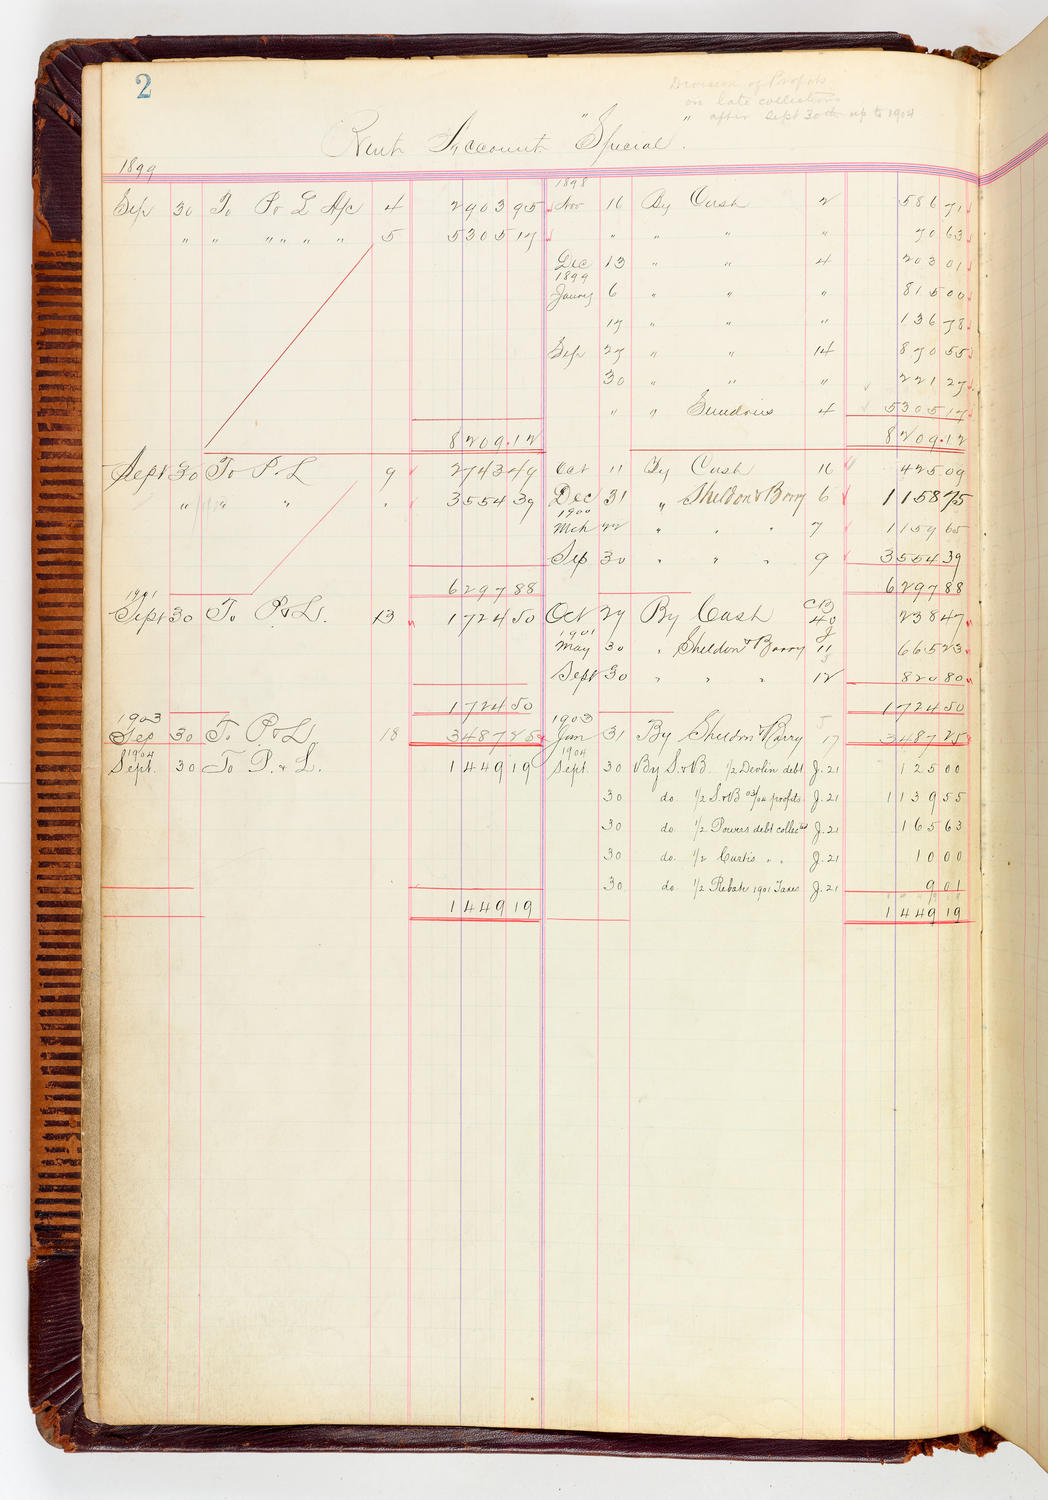 2
Division of Profits
on late collections
" after Sept 30th up to 1904
Rent Account "Special"
1899
Sep 30 To P & L A/c 4 2903 95
" " " " " " 5 5305 17
8209.12
Sept 30 To P & L 9 2743 49
" " " " 3554 39
6297 88
1901
Sept 30 To P & L. 13 1724 50
1724 50
1903
Sep 30 To P & L 18 3487 25
1904
Sept. 30 To P. & L. 1449 19
1449 19
1898
Nov 16 By Cash 2 586 71
" " " " 70 63
Dec 13 " " 4 203 01
1899
Jany 6 " " " 815 00
17 " " " 136 78
Sep 27 " " 14 870 55
30 " " " 221 27
" " Sundries 4 5305 17
8209.12
Oct 11 By Cash 16 425 09
Dec 31 " Sheldon & Barry 6 1158 75
1900
Mch 22 " " " 7 1159 65
Sep 30 " " " 9 3554 39
6297 88
Oct 29 By Cash CB 40 238 47
1901 J
May 30 " Sheldon & Barry 11 665 23
Sept 30 " " " 12 820 80
1724 50
1903
Jan 31 By Sheldon & Barry J 17 3487 25
1904
Sept. 30 By S. & B. 1/2 Devlin debt J. 21 125 00
30 do. 1/2 S. & B 03/04 profits J. 21 1139 55
30 do. 1/2 Powers debt collected J. 21 165 63
30 do. 1/2 Curtis " " J. 21 10 00
30 do. 1/2 Rebate 1901 Taxes J. 21 9 01
1449 19